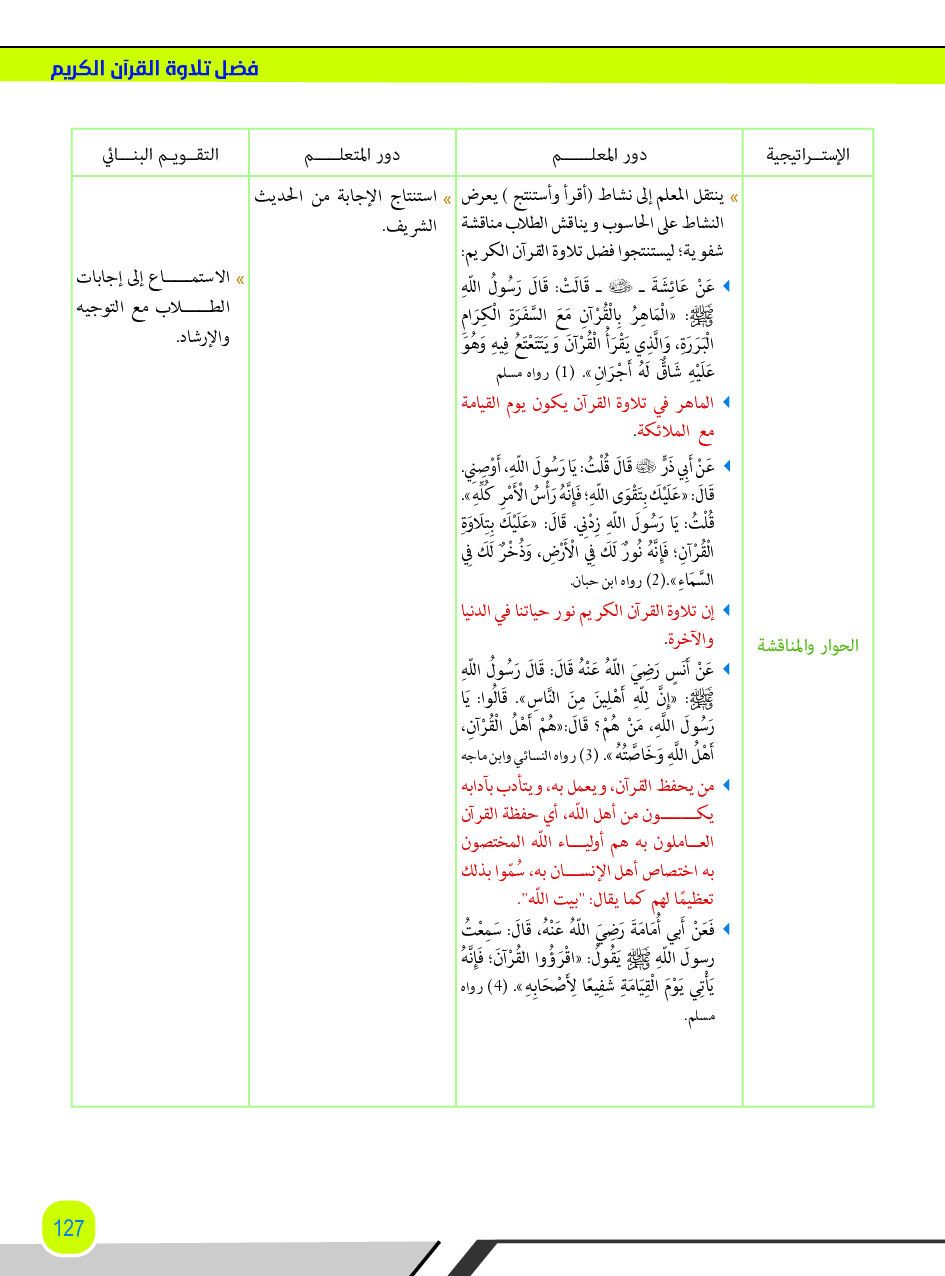 فضل تلاوة القرآن الكريم
الإستـراتيجية
دور المعلـم
دور المتعلـم
التقـويـم البنـائي
الحوار والمناقشة
» ينتقل المعلم إلى نشاط (أقرأ وأستنتج ) يعرض
النشاط على الحاسوب ويناقش الطلاب مناقشة
شفوية؛ ليستنتجوا فضل تلاوة القرآن الكريم:
عَنْ عَائِشَةَ ـ رضي الله عنها ـ قَالَتْ: قَالَ رَسُولُ اللّهِ
ﷺ: «الْمَاهِرُ بِالْقُرْآنِ مَعَ السَّفَرَةِ الْكِرَامِ
الْبَرَرَةِ، وَالَّذِي يَقْرَأُ الْقُرْآنَ وَيَتَتَعْتَعُ فِيهِ وَهُوَ
عَلَيْهِ شَاقٌّ لَهُ أَجْرَانِ». (1) رواه مسلم
الماهر في تلاوة القرآن يكون يوم القيامة
مع الملائكة.
عَنْ أَبِي ذَرٍّ رضي الله عنه قَالَ قُلْتُ: يَا رَسُولَ اللّهِ، أَوْصِنِي.
قَالَ: «عَلَيْكَ بِتَقْوَى اللّهِ؛ فَإِنَّهُ رَأْسُ الْأَمْرِ كُلِّهِ».
قُلْتُ: يَا رَسُولَ اللّهِ زِدْنِي. قَالَ: «عَلَيْكَ بِتِلَاوَةِ
الْقُرْآنِ؛ فَإِنَّهُ نُورٌ لَكَ فِي الْأَرْضِ، وَذُخْرٌ لَكَ فِي
السَّمَاءِ».(2) رواه ابن حبان.
إن تلاوة القرآن الكريم نور حياتنا في الدنيا
والآخرة.
عَنْ أَنَسٍ رَضِيَ اللّهُ عَنْهُ قَالَ: قَالَ رَسُولُ اللّهِ
ﷺ: «إِنَّ لِلّهِ أَهْلِينَ مِنَ النَّاسِ». قَالُوا: يَا
رَسُولَ اللَّهِ، مَنْ هُمْ؟ قَالَ:«هُمْ أَهْلُ الْقُرْآنِ،
أَهْلُ اللَّهِ وَخَاصَّتُهُ». (3) رواه النسائي وابن ماجه
من يحفظ القرآن، ويعمل به، ويتأدب بآدابه
يكـون من أهل اللّه، أي حفظة القرآن
العـاملون به هم أوليـاء اللّه المختصون
به اختصاص أهل الإنسـان به، سُمّوا بذلك
تعظيمًا لهم كما يقال: "بيت اللّه".
فَعَنْ أَبي أُمَامَةَ رَضِيَ اللّهُ عَنْهُ، قَالَ: سَمِعْتُ
رسولَ اللّهِ ﷺ يَقُولُ: «اقْرَؤُوا القُرْآنَ؛ فَإِنَّهُ
يَأْتِي يَوْمَ الْقِيَامَةِ شَفِيعًا لِأَصْحَابِهِ». (4) رواه
مسلم.
» استنتاج الإجابة من الحديث
الشريف.
» الاستمـاع إلى إجابات
الطـلاب مع التوجيه
والإرشاد.
127